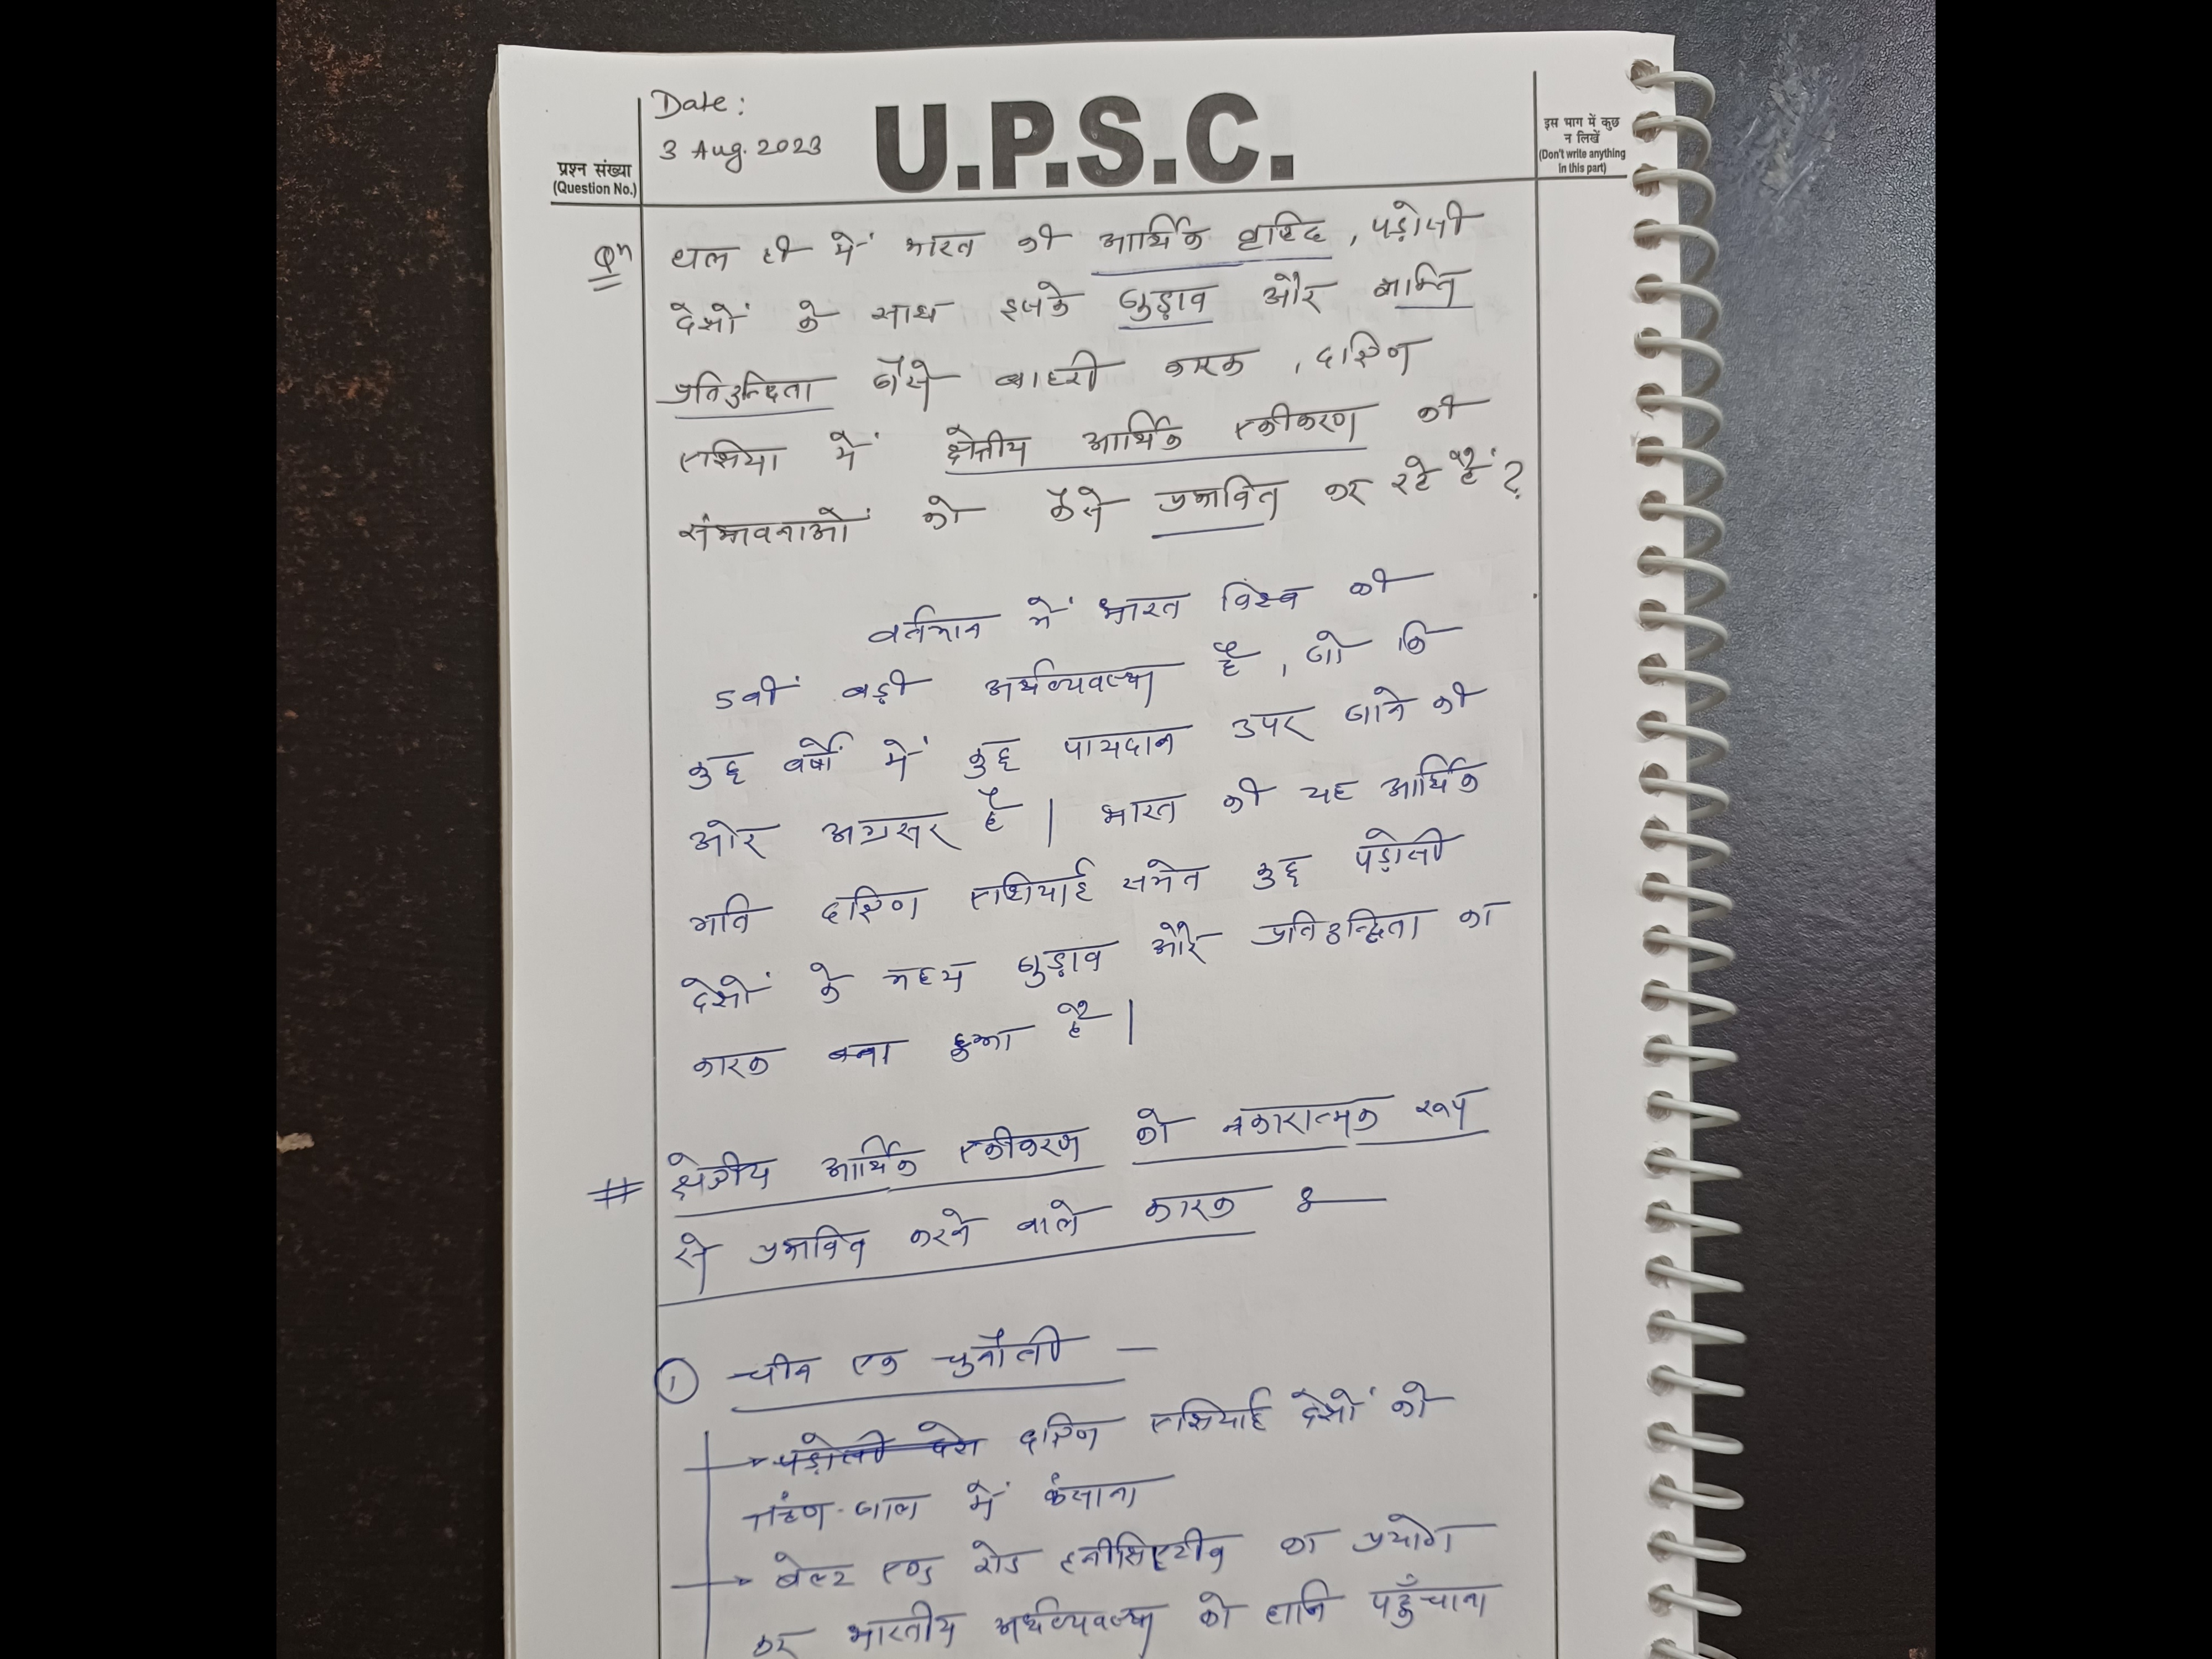 Date:
3 Aug. 2023
U.P.S.C.
प्रश्न संख्या
(Question No.)
इस भाग में कुछ
न लिखें
(Don't write anything
in this part)
Qn हाल ही में भारत की आर्थिक वृद्धि, पड़ोसी
देशों के साथ इसके जुड़ाव और शक्ति
प्रतिद्वन्द्विता जैसे बाहरी कारक, दक्षिण
एशिया में क्षेत्रीय आर्थिक एकीकरण की
संभावनाओं को कैसे प्रभावित कर रहे हैं?
वर्तमान में भारत विश्व की
5वीं बड़ी अर्थव्यवस्था है, जो कि
कुछ वर्षों में कुछ पायदान उपर जाने की
ओर अग्रसर है | भारत की यह आर्थिक
गति दक्षिण एशियाई समेत कुछ पड़ोसी
देशों के मध्य जुड़ाव और प्रतिद्वन्द्विता का
कारक बना हुआ है |
# क्षेत्रीय आर्थिक एकीकरण को नकारात्मक रूप
से प्रभावित करने वाले कारक :-
① चीन एक चुनौती —
→ दक्षिण एशियाई देशों को
ऋण-जाल में फंसाना
→ बेल्ट एण्ड रोड इनीसिएटीव का प्रयोग
कर भारतीय अर्थव्यवस्था को हानि पहुँचाना